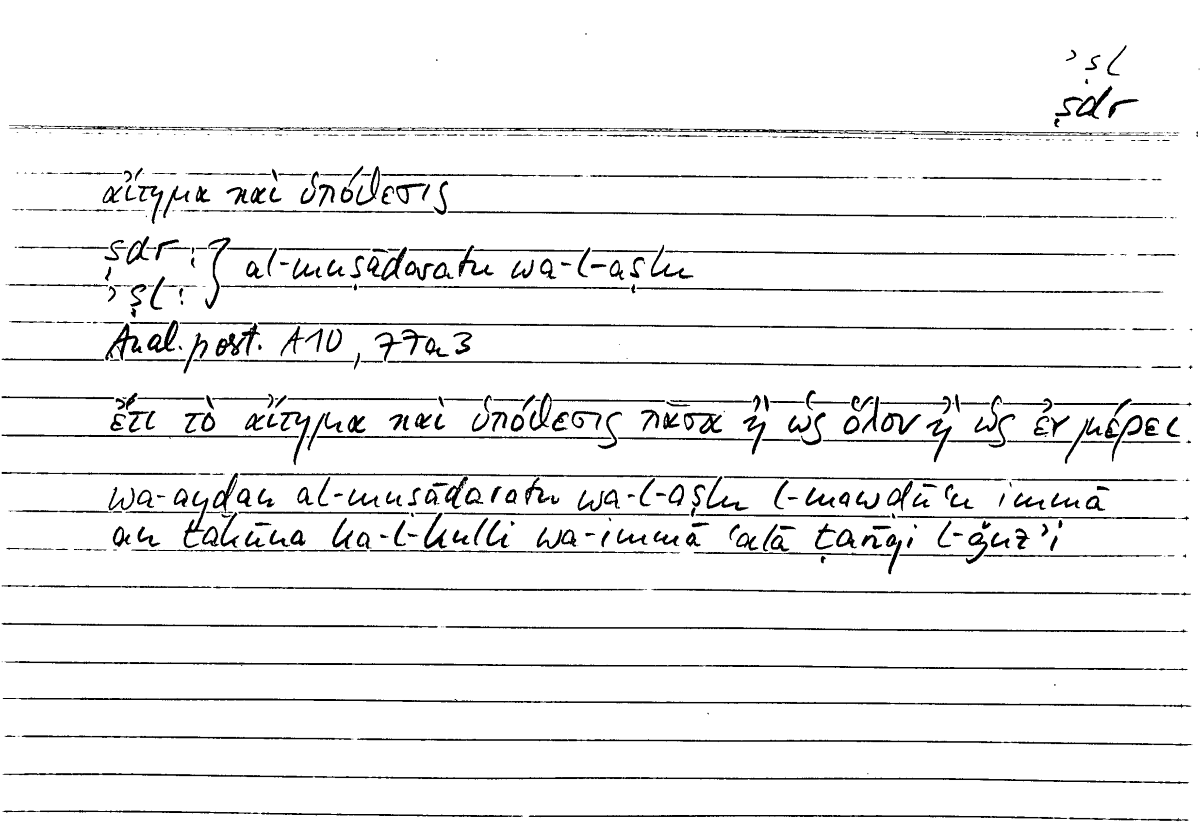 ʾṣl
ṣdr
αἴτημα καὶ ὑπόθεσις
ṣdr:
ʾṣl: } al-muṣādaratu wa-l-aṣlu
Anal. post. A10, 77a3
ἔτι τὸ αἴτημα καὶ ὑπόθεσις πᾶσα ἢ ὡς ὅλον ἢ ὡς ἐν μέρει.
wa-ayḍan al-muṣādaratu wa-l-aṣlu l-mawḍūʿu immā
an takūna ka-l-kulli wa-immā ʿalā ṭarīqi l-ǧuzʾi